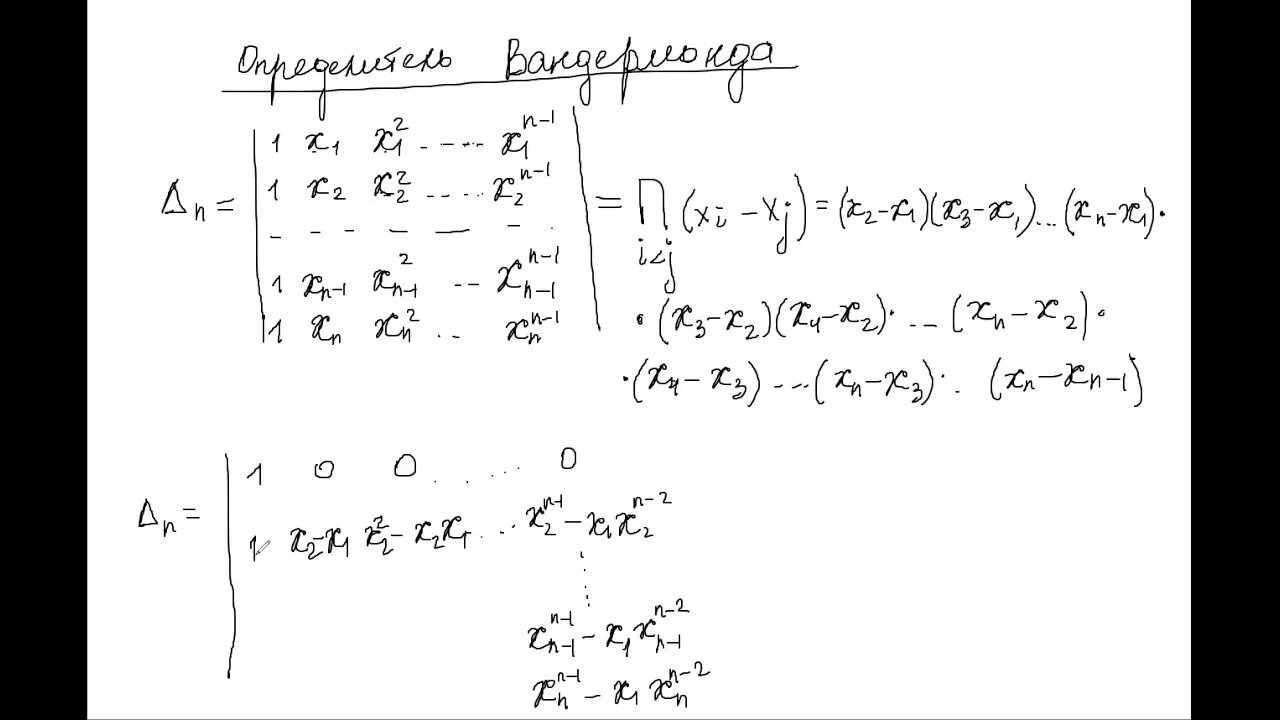 Определитель Вандермонда
Δₙ = | 1 x₁ x₁² ..... x₁ⁿ⁻¹ |
| 1 x₂ x₂² ..... x₂ⁿ⁻¹ | = ∏_{i<j} (xᵢ − xⱼ) = (x₂−x₁)(x₃−x₁)...(xₙ−x₁)·
| − − − − − − . |
| 1 xₙ₋₁ xₙ₋₁² .. xₙ₋₁ⁿ⁻¹ |
| 1 xₙ xₙ² .. xₙⁿ⁻¹ | ·(x₃−x₂)(x₄−x₂)· ... (xₙ−x₂)·
·(x₄−x₃) ...(xₙ−x₃)· . (xₙ−xₙ₋₁)
Δₙ = | 1 0 0 .... 0
| 1 x₂−x₁ x₂²−x₂x₁ ... x₂ⁿ⁻¹ − x₁x₂ⁿ⁻²
⋮
xₙ₋₁ⁿ⁻¹ − x₁xₙ₋₁ⁿ⁻²
xₙⁿ⁻¹ − x₁xₙⁿ⁻²